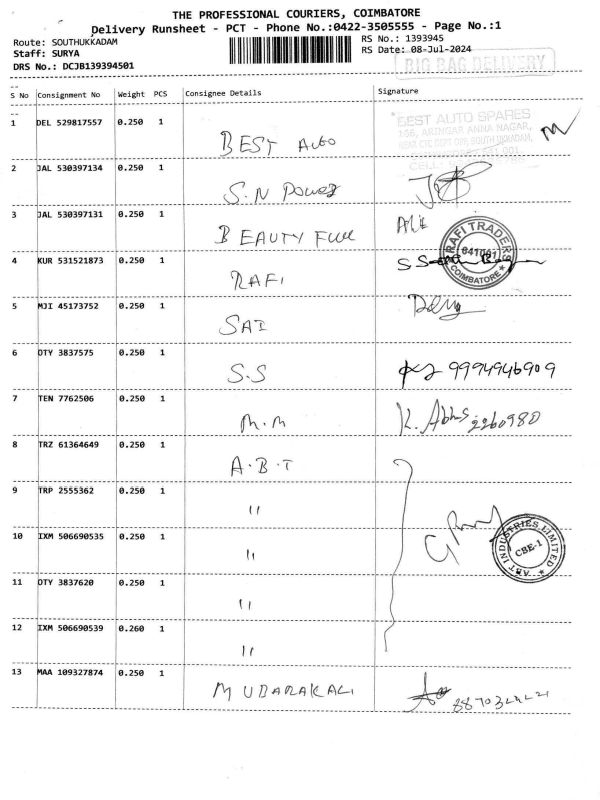 THE PROFESSIONAL COURIERS, COIMBATORE
Delivery Runsheet - PCT - Phone No.:0422-3505555 - Page No.:1
Route: SOUTHUKKADAM
RS No.: 1393945
Staff: SURYA
RS Date: 08-Jul-2024
DRS No.: DCJB139394501
BIG BAG DELIVERY
S No Consignment No Weight PCS Consignee Details Signature
1 DEL 529817557 0.250 1 BEST Auto
BEST AUTO SPARES
ARINGAR ANNA NAGAR,
2 JAL 530397134 0.250 1 S.N Power
3 JAL 530397131 0.250 1 BEAUTY
4 KUR 531521873 0.250 1 RAFI
RAFI TRADERS
641001
COIMBATORE
5 MJI 45173752 0.250 1 SAI
6 OTY 3837575 0.250 1 S.S 9994946909
7 TEN 7762506 0.250 1 M.M K. 2260980
8 TRZ 61364649 0.250 1 A.B.T
9 TRP 2555362 0.250 1 "
10 IXM 506690535 0.250 1 "
ABT INDUSTRIES LIMITED
CBE-1
11 OTY 3837620 0.250 1 "
12 IXM 506690539 0.260 1 "
13 MAA 109327874 0.250 1 MUBARAKALI